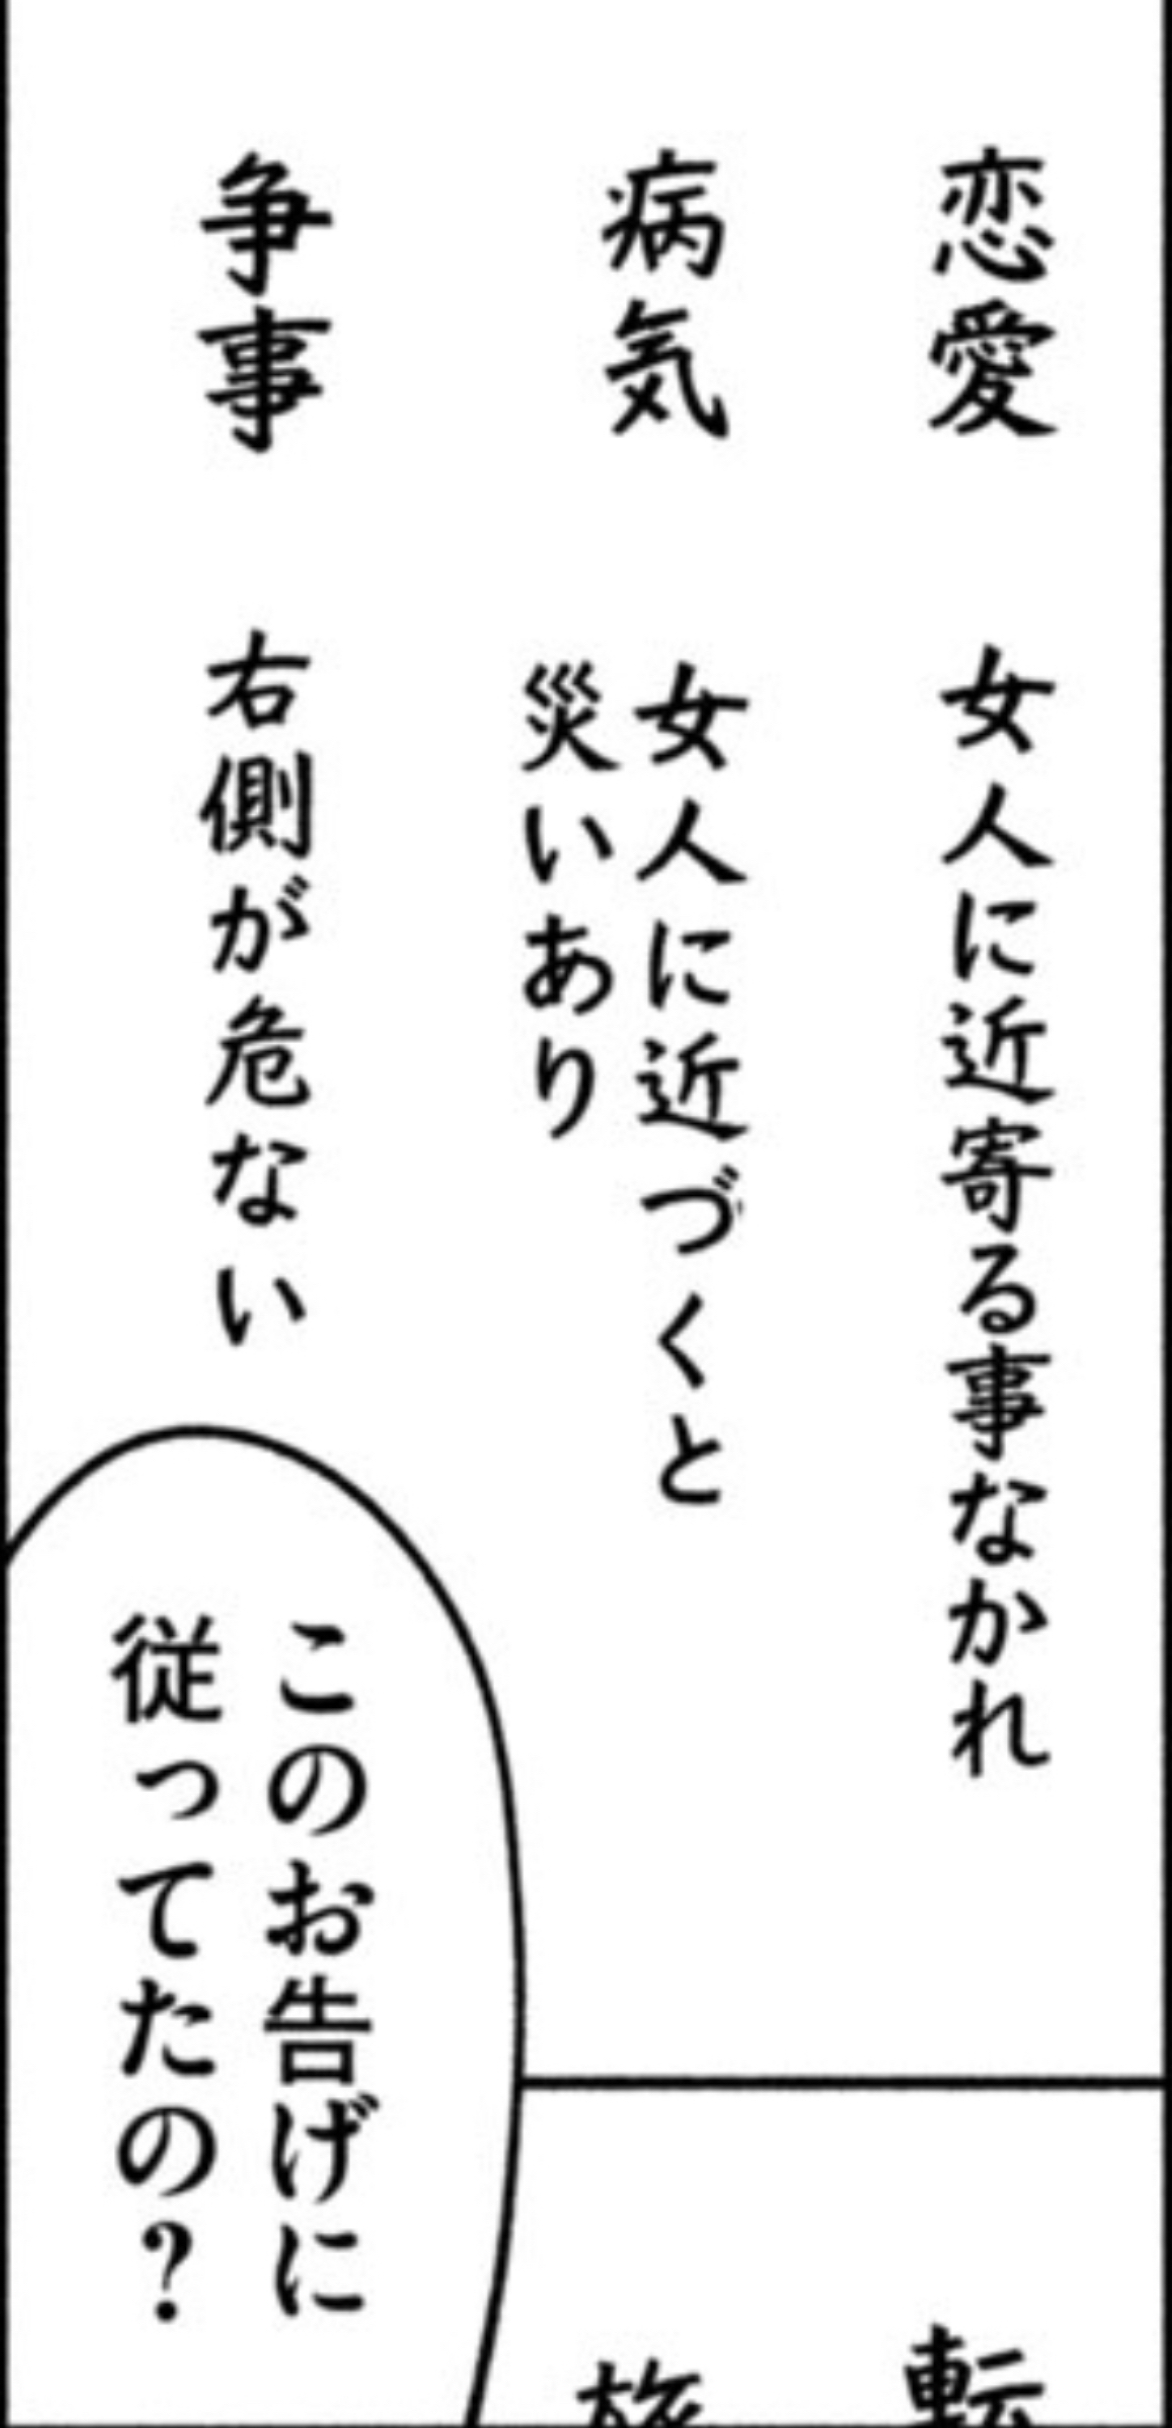 恋愛 女人に近寄る事なかれ
病気 女人に近づくと
災いあり
争事 右側が危ない
このお告げに
従ってたの?
転
旅